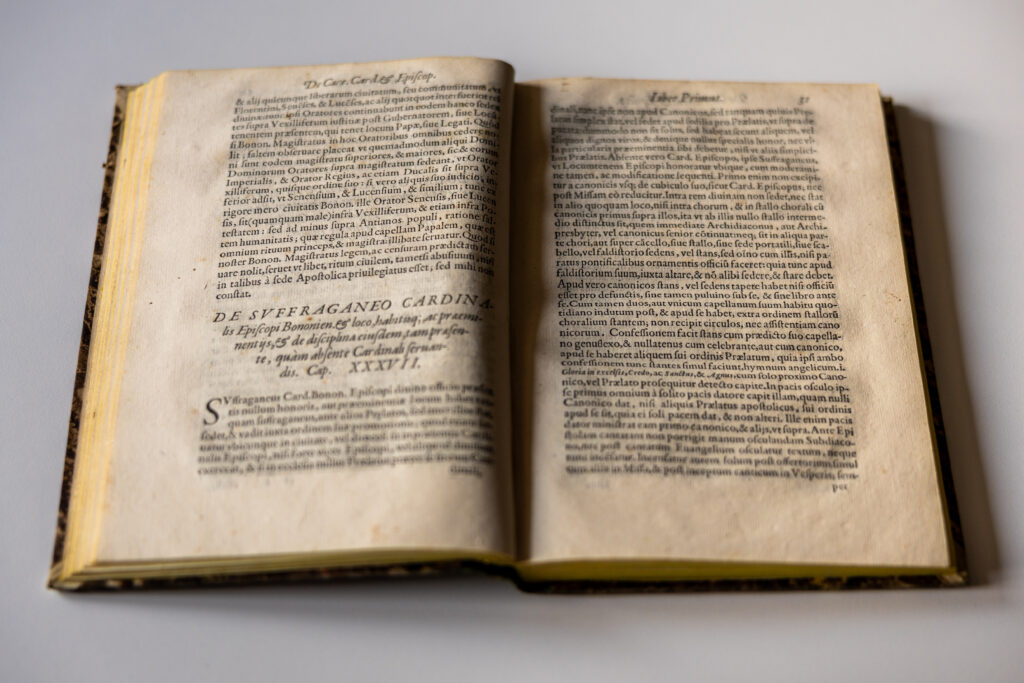 De Care. Card. & Episcop.
& alij quicunque liberarum ciuitatum, seu communitatum, vt
Florentini, Senẽses, & Lucẽses, ac alij quotquot inter fuerint rei
diuinæ cum ipsi Oratores continuabunt in eodem banco seden
tes supra Vexilliferum iustitiæ post Gubernatorem, siue Locũ
tenentem præsentem, qui tenet locum Papæ, siue Legati. Quod
si Bonon. Magistratus in hoc Oratoribus omnibus cedere nu
lit; saltem obseruare placeat vt quemadmodum aliqui Domi
ni sunt eodem magistratu superiores, & maiores, sic & eorum
Dominorum Oratores supra magistratum sedeant, vt Orator
Imperialis, & Orator Regius, ac etiam Ducalis sit supra Ve-
xilliferum, quisque ordine suo: si vero aliquis suo iudicio, in
ferior adsit, vt Senensium, & Lucensium, & similium; tunc ex
rigore mero ciuitatis Bonon. ille Orator Senensis, siue Lucen
sis, sit (quamquam male) infra Vexilliferum, & etiam infra Po
testatem: sed ad minus supra Antianos populi, ratione sal-
tem humanitatis; quæ regula apud capellam Papalem, quæ est
omnium rituum princeps, & magistra: illibate seruatur. Quod si
noster Bonon. Magistratus legem, ac censuram prædictam ser-
uare nolit, seruet vt libet, ritum ciuilem, tametsi abusiuum, nisi
in talibus à sede Apostolica priuilegiatus esset, sed mihi non
constat.
DE SVFFRAGANEO CARDINA-
lis Episcopi Bononien. & loco, habituq; ac præemi-
nentijs, & de disciplina eiusdem, tam præsen-
te, quàm absente Cardinali seruan-
dis. Cap. XXXVII.
SVffraganeus Card. Bonon. Episcopi diuino officio præsen
tis nullum honoris, aut præeminentiæ locum habet
quam suffraganeus, sed
sedet, & vadit iuxta ordinem suæ promotionis
in ciuitate, vel diœcesi
nalis Episcopi, nisi forte vices Episcopi,
exerceat, & si in ecclesia nullus Prælatus
Liber Primus. 31
dinali, tunc ipse non apud Canonicos, sed tanquam quiuis Præ
latus simplex stat, vel sedet apud
putatur: dummodo non sit solus, sed habeat secum aliquem, vel
aliquos dignos viros, & dummodo nullus specialis honor, nec vl
la particularis præeminentia sibi debetur, nisi vt alijs simplici-
bus Prælatis. Absente vero Card. Episcopo, ipse Suffraganeus,
vt Locumtenens Episcopi honoratur vbique, cum moderami-
ne tamen, ac modificatione sequenti. Primo enim non excipi-
tur a canonicis vsq; de cubiculo suo, sicut Card. Episcopus, nec
post Missam eò reducitur. Intra rem diuinam non sedet, nec stat
in alio quoquam loco, nisi intra chorum, & in stallo chorali cũ
canonicis primus supra illos, ita vt ab illis nullo stallo interme-
dio distinctus sit, quem immediate Archidiaconus, aut Archi-
presbyter, vel canonicus senior cõtinuat: neq; sit in aliqua par-
te chori, aut super cãcello, siue stallo, siue sede portatili, siue sca-
bello, vel faldistorio sedens, vel stans, sed oĩno cum illis, nisi pa
ratus pontificalibus ornamentis officiũ faceret: quia tunc apud
faldistorium suum, iuxta altare, & nõ alibi sedere, & stare debet.
Apud vero canonicos stans, vel sedens tapete habet nisi officiũ
esset pro defunctis, siue tamen puluino sub se, & sine libro ante
se. Cum tamen duos, aut vnicum capellanum suum habitu quo-
tidiano indutum post, & apud se habet, extra ordinem stallorũ
choralium stantem, non recipit circulos, nec assistentiam cano
nicorum. Confessionem facit stans cum prædicto suo capella-
no genuflexo, & nullatenus cum celebrante, aut cum canonico,
apud se haberet aliquem sui ordinis Prælatum, quia ipsi ambo
confessionem tunc stantes simul faciunt, hymnum angelicum. i.
Gloria in excelsis, Credo, ac Sanctus, & Agnus, cum solo proximo Cano-
nico, vel Prælato prosequitur detecto capite. In pacis osculo ip-
se primus omnium à solito pacis datore capit illam, quam nulli
Canonico dat, nisi aliquis Prælatus apostolicus, sui ordinis
apud se sit, qui a ei soli pacem dat, & non alteri. Ille enim pacis
dator ministrat eam primo canonico, & alijs, vt supra. Ante Epi
stolam cantatam non porrigit manum osculandam Subdiaco-
no, nec post cantatum Euangelium osculatur textum, neque
tunc incensatur. Incensatur autem solum post offertorium simul
cum alijs in Missa, & post inceptum canticum in Vesperis, sem-
per